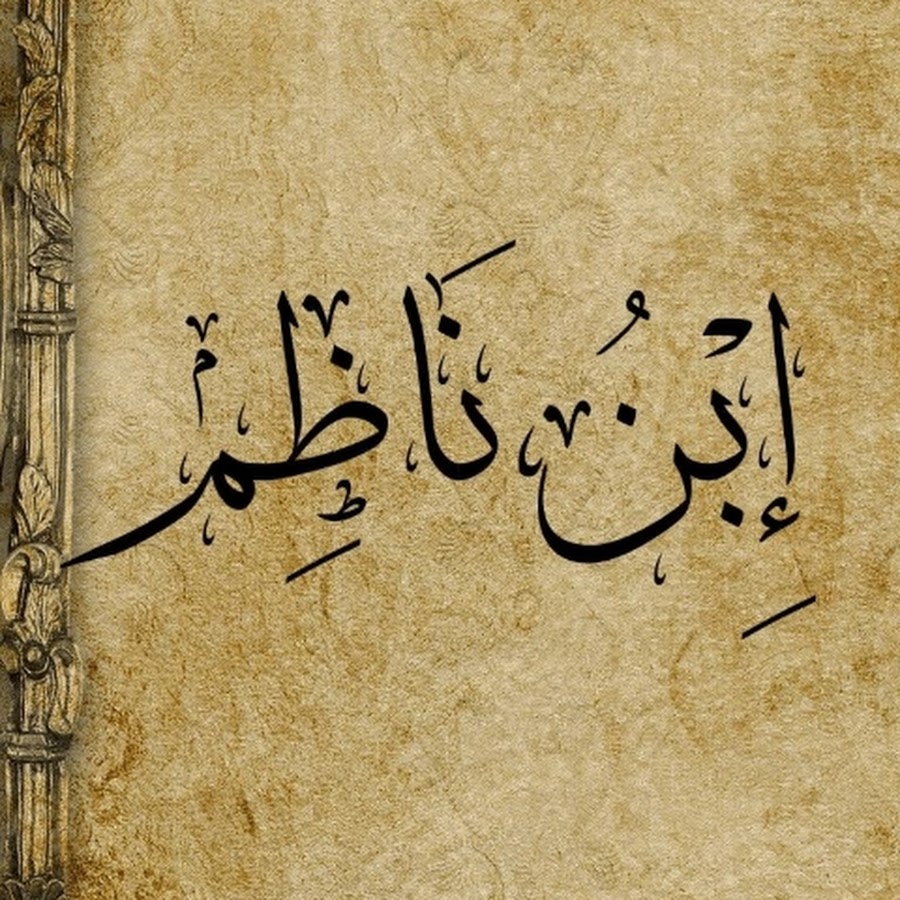 إِبْنُ نَاظِمْ